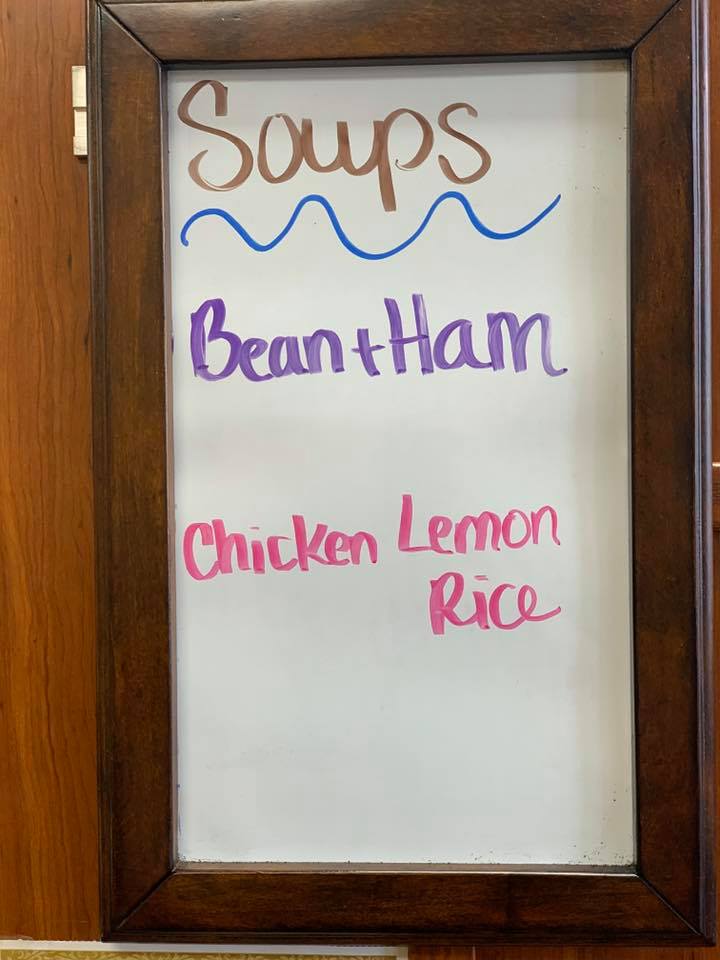 Soups
Bean + Ham
Chicken Lemon
Rice